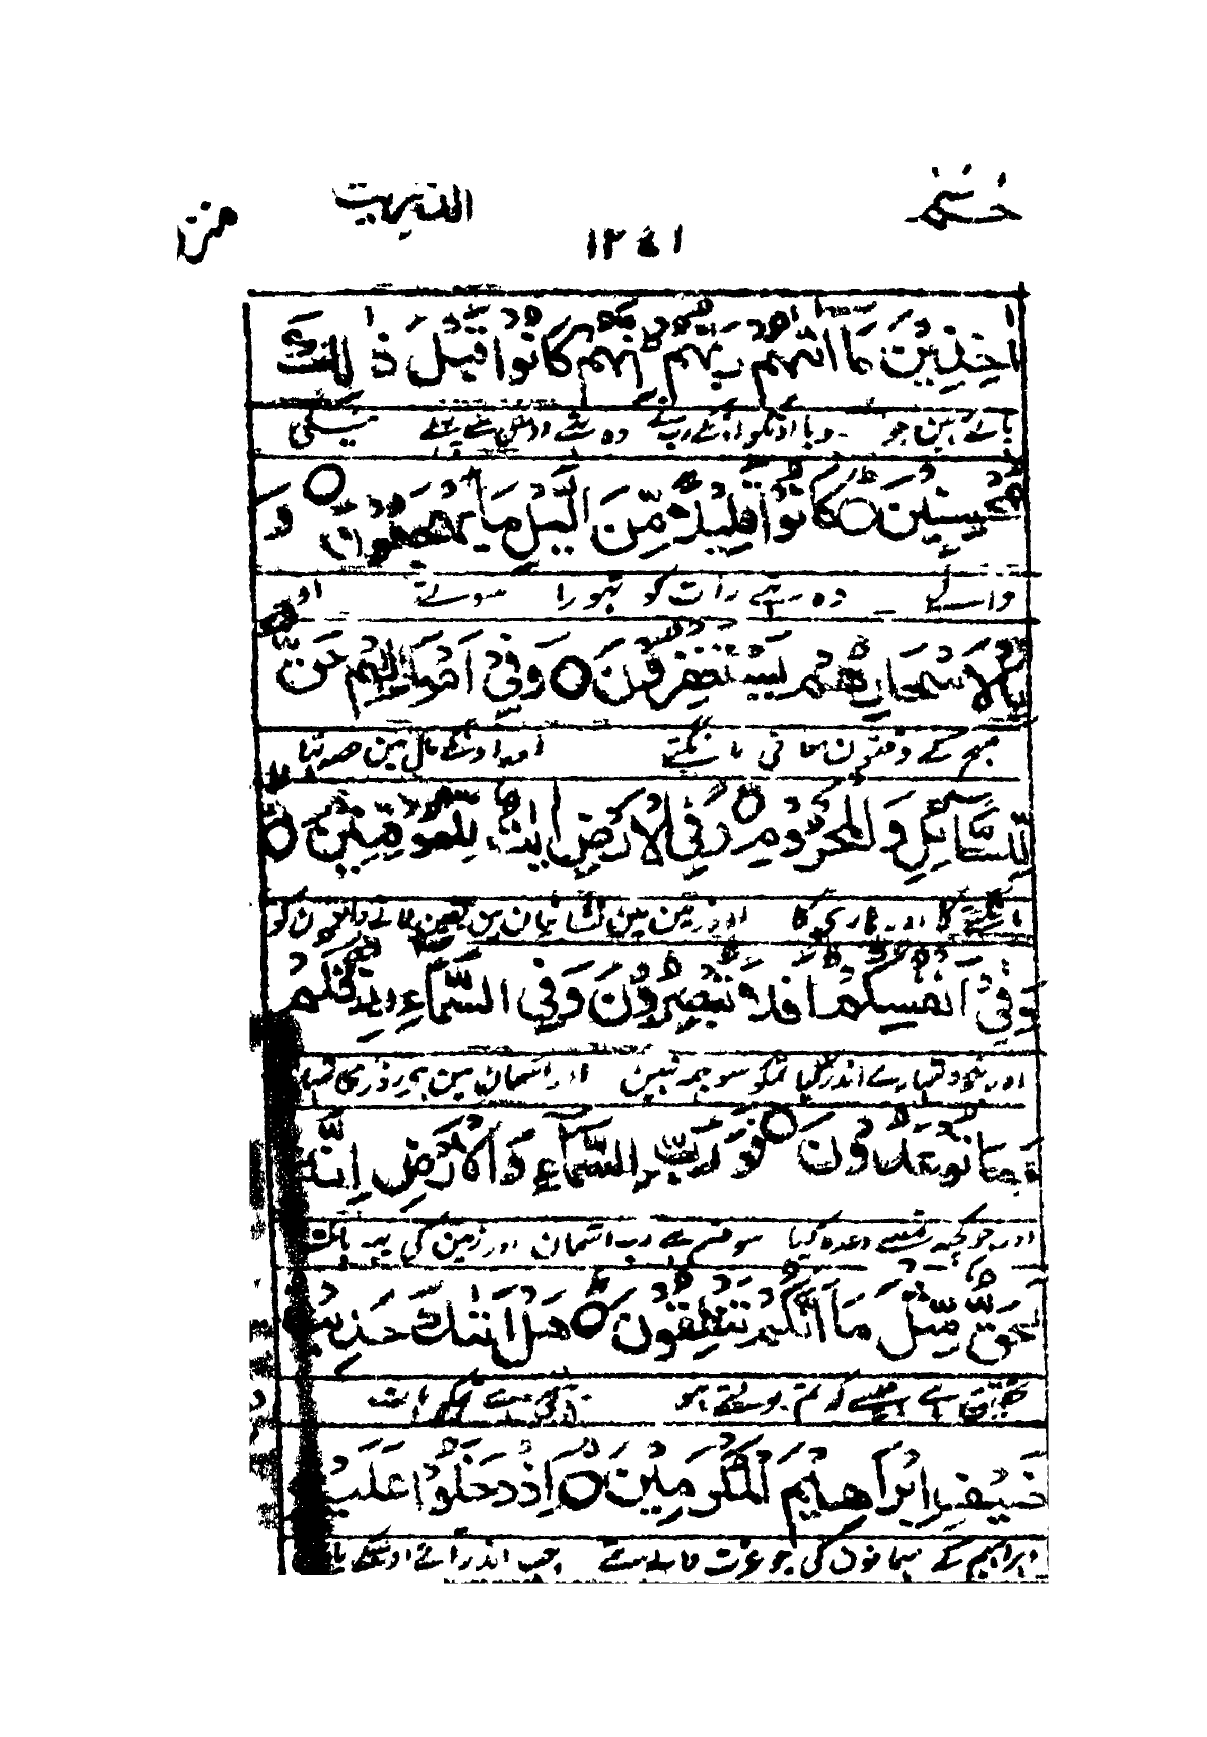 حٰمٓ
الذّٰریٰت
اٰخِذِیْنَ مَاۤ اٰتٰىهُمْ رَبُّهُمْ اِنَّهُمْ كَانُوْا قَبْلَ ذٰلِكَ
وہ تھے اس سے پہلے نیکی
مُحْسِنِیْنَ كَانُوْا قَلِیْلًا مِّنَ الَّیْلِ مَا یَهْجَعُوْنَ وَ
والے وہ تھے رات کو تھورا سوتے اور
بِالْاَسْحَارِ هُمْ یَسْتَغْفِرُوْنَ وَفِیْۤ اَمْوَالِهِمْ حَقٌّ
صبح کے وقتون معافی مانگتے اور اونکے مال مین حصہ تہا
لِّلسَّآىِٕلِ وَالْمَحْرُوْمِ وَفِی الْاَرْضِ اٰیٰتٌ لِّلْمُوْقِنِیْنَ
مانگتے کا اور ہاری کا اور زمین مین نشانیان ہین یقین لانے والون کو
وَفِیْۤ اَنْفُسِكُمْ اَفَلَا تُبْصِرُوْنَ وَفِی السَّمَآءِ رِزْقُكُمْ
اور خود تمہارے اندر کیا تمکو سوجہ نہین اور آسمان مین ہے روزی تمہاری
وَمَا تُوْعَدُوْنَ فَوَرَبِّ السَّمَآءِ وَالْاَرْضِ اِنَّهٗ
اور جو کچہہ تمسے وعدہ کیا سو قسم ہے رب آسمان اور زمین کی یہ بات
لَحَقٌّ مِّثْلَ مَاۤ اَنَّكُمْ تَنْطِقُوْنَ هَلْ اَتٰىكَ حَدِیْثُ
تحقیق ہے جیسے کہ تم بولتے ہو
ضَیْفِ اِبْرٰهِیْمَ الْمُكْرَمِیْنَ اِذْ دَخَلُوْا عَلَیْهِ
ابراہیم کے مہمانون کی جو عزت والے تھے جب اندر آئے اوسکے پاس